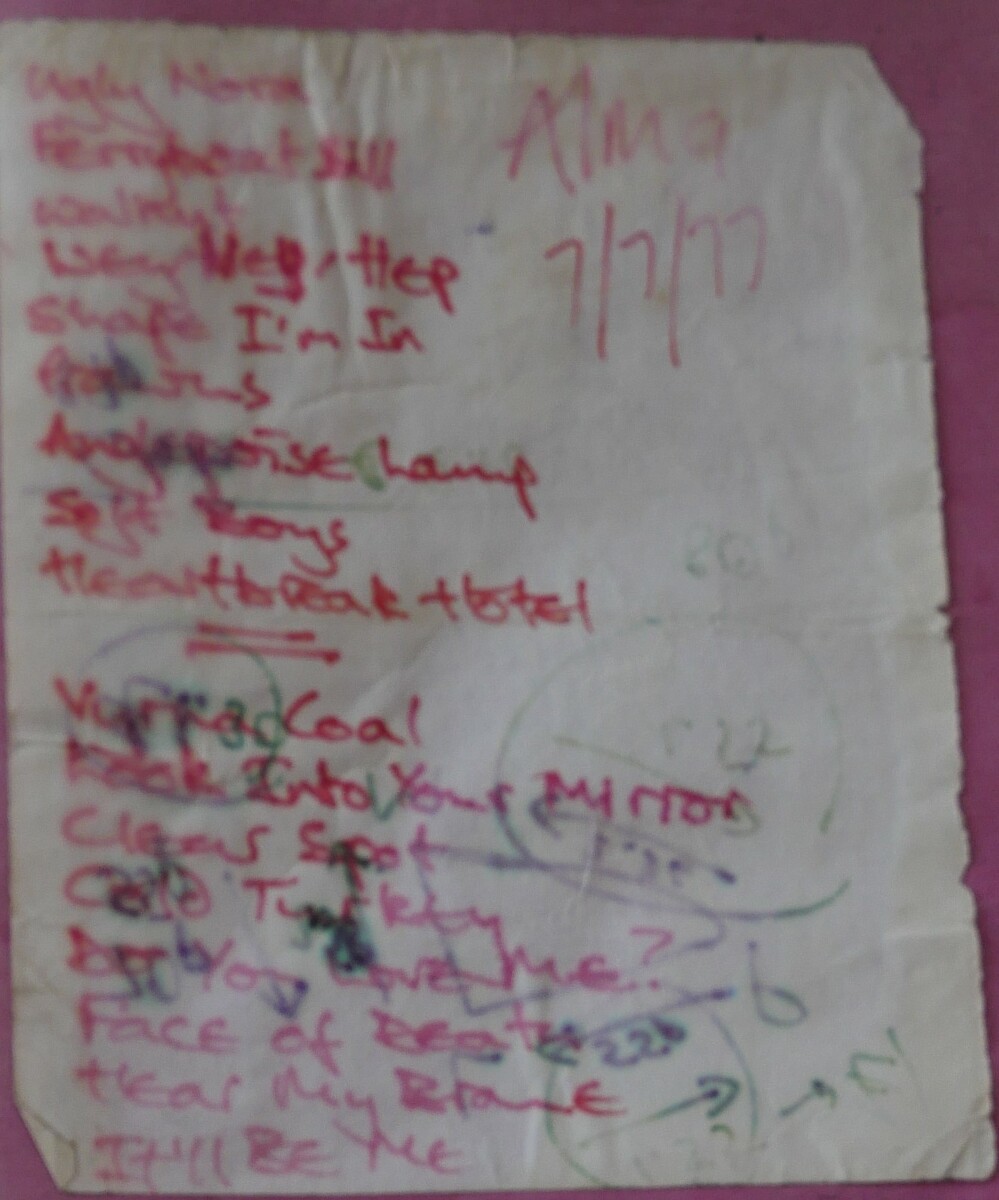 Ugly Nora
Alma
Ferryboat Bill
7/7/77
Walnut
Wey Wey Hep
Shape I'm In
Anglepoise Lamp
Soft Boys
Heartbreak Hotel
Vyrna Coal
Look Into Your Mirror
Clear Spot
Cold Turkey
Do You Love Me?
Face of Death
Hear My Brane
It'll BE ME